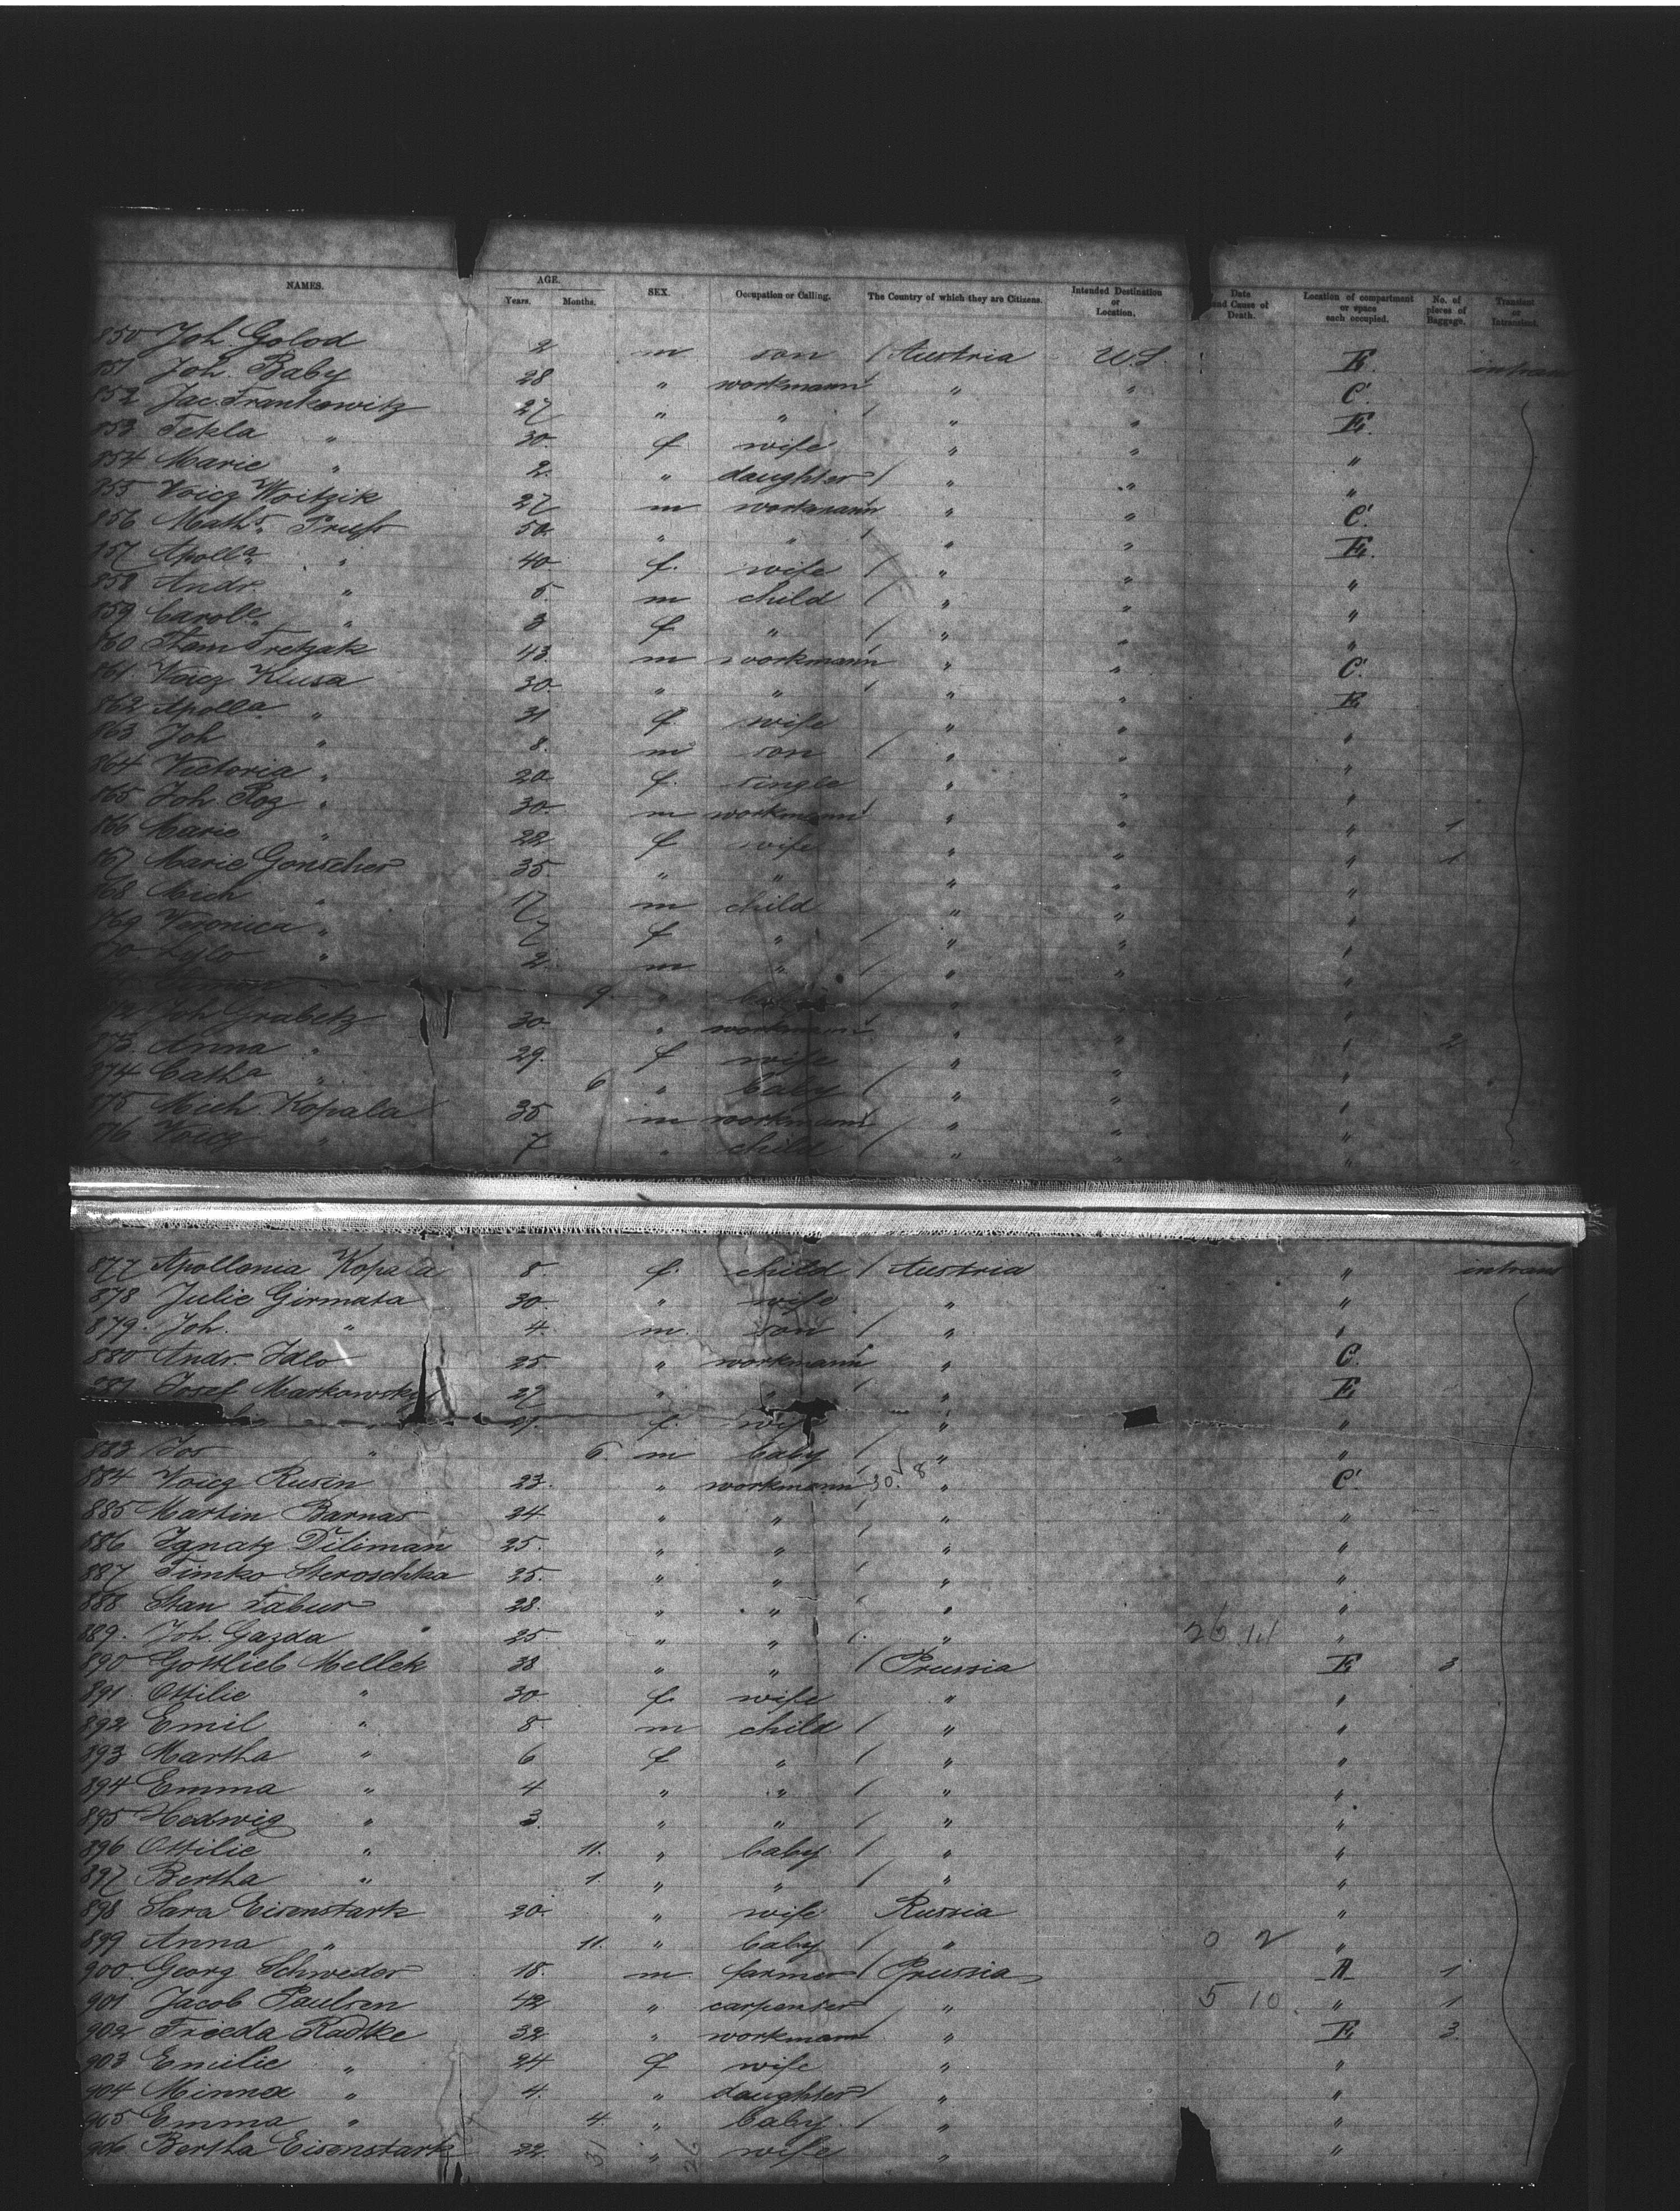 NAMES. AGE. Years. Months. SEX. Occupation or Calling. The Country of which they are Citizens. Intended Destination or Location. Date and Cause of Death. Location of compartment or space each occupied. No. of pieces of Baggage. Transient or Intransient.
850 Joh. Golod 2 m son / Austria U.S. E. intrans
851 Joh. Baby 28 " workmann " " C.
852 Jac. Frankowitz 27 " " / " " E.
853 Tekla " 30 f wife " " "
854 Marie " 2 " daughter / " " "
855 Voicz Woitzik 27 m workmann " " C.
856 Maths. Pruss 50 " " / " " E.
857 Apolla " 40 f. wife / " " "
858 Andr. " 5 m child / " " "
859 Carole " 3 f " / " " "
860 Stam Tretzak 43 m workmann " " C.
861 Voicz Klusa 30 " " / " " E
862 Apolla " 31 f wife " " "
863 Joh " 8 m son / " " "
864 Victoria " 20 f. single " " "
865 Joh. Roz " 30 m workmann " " " 1
866 Marie " 22 f wife " " " 1
867 Marie Gonscher 35 " " " " "
868 Mich " 17 m child " " "
869 Veronica " 7 f " / " " "
870 " 2 m " / " " "
9 " / " "
872 Joh Grabetz 30 " workmann " " " 2
873 Anna " 29 f wife " " "
874 Catha " 6 " baby / " " "
875 Mich Kopala 35 m workmann " " "
876 Voicz " 7 " child / " " "
877 Apollonia Kopala 8 f. child / Austria " intrans
878 Julie Girmata 30 " wife " "
879 Joh. " 4 m. son / " "
880 Andr. Idlo 25 " workmann " C.
881 Josef Markowsky 27 " " / " E
f. wife " "
883 Jos " 6 m baby / " "
884 Voicz Rusin 23 " workmann 30 / 8 " C.
885 Martin Barnas 24 " " / " "
886 Ignatz Diliman 25 " " " "
887 Timko Steroschka 25 " " / " "
888 Stan Tabur 28 " " / " "
889 Joh. Gazda 25 " " / " "
890 Gottlieb Mellek 38 " " / Prussia E 3
891 Ottilie " 30 f. wife " "
892 Emil " 8 m child / " "
893 Martha " 6 f " / " "
894 Emma " 4 " " / " "
895 Hedwig " 3 " " / " "
896 Ottilie " 11. " baby / " "
897 Bertha " 1 " " / " "
898 Sara Eisenstark 20 " wife Russia "
899 Anna " 11. " baby / " 0 2 "
900 Georg Schweder 18 m farmer / Prussia A 1
901 Jacob Paulsen 42 " carpenter " 5 10 " 1
902 Frieda Radtke 32 " workmann " E 3
903 Emilie " 24 f wife " "
904 Minna " 4 " daughter / " "
905 Emma " 4 " baby / " "
906 Bertha Eisenstark 22 " wife " "